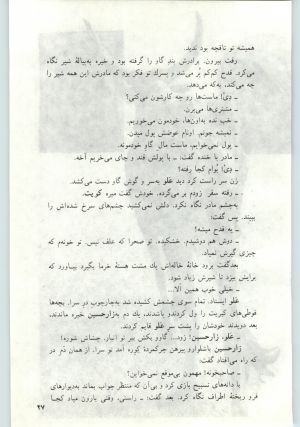 همیشه تو تاقچه بود ندید.
رفت بیرون. برادرش بند گاو را گرفته بود و خیره به پیالهٔ شیر نگاه
می‌کرد. قدح کم‌کم پر می‌شد و پسرک تو فکر بود که مادرش این همه شیر را
چه می‌کند، به که می‌دهد.
ـ ننه! ماست‌ها رو چه کارشون می‌کنی؟
ـ مشتری‌ها می‌برن.
ـ خب نده به اون‌ها، خودمون می‌خوریم.
ـ نمیشه جونم. اونام عوضش پول میدن.
ـ پول نمی‌خوایم، ماست مال گاو خودمونه.
ـ مادر با خنده گفت: ـ با پولش قند و چای می‌خریم آخه.
ـ بوام کجا رفته؟
زن سر راست کرد دید علو به سر و گوش گاو دست می‌کشد.
ـ رفته سفر رودم بر می‌گرده. خودش گفت میره کویت.
به چشم مادر نگاه نکرد. دلش نمی‌کشید چشم‌های سرخ شده‌اش را
ببیند. پس گفت:
ـ یه قدح میشه؟
ـ دوش هم دوشیدم. خشکیده. تو صحرا که علف نیس. تو خونه‌م که
چیزی گیرش نمیاد.
بعد گفت برود خانهٔ خاله‌اش یک مشت هستهٔ خرما بگیرد بیاورد که
برایش بپزد تا شیرش زیاد شود.
ـ خیلی خوب همین آلا...
علو ایستاد. تمام سوی چشمش کشیده شد به چارچوب در سرا. بچه‌ها
قوطی‌های کبریت را ول کردند و باشدند، یک دم به زارحسین خیره ماندند،
بعد دویدند خودشان را پشت سر علو قایم کردند.
ـ علو، زارحسین! زود... گاوو بکش ببر تو انبار، چشاش شوره!
زارحسین پاشلواور و پیرهن چرکمردهٔ کوره آمد تو سرا. از همان دم در
که راه می‌افتاد گفت:
ـ صاحبخونه! مهمون بی‌موقع نمی‌خواین؟
با دانه‌های تسبیح بازی کرد و بی‌آن که منتظر جواب بماند به دیوارهای
فرو ریختهٔ اطراف نگاه کرد. بعد گفت: ـ راستی، وقتی بارون میاد کجا
۲۷